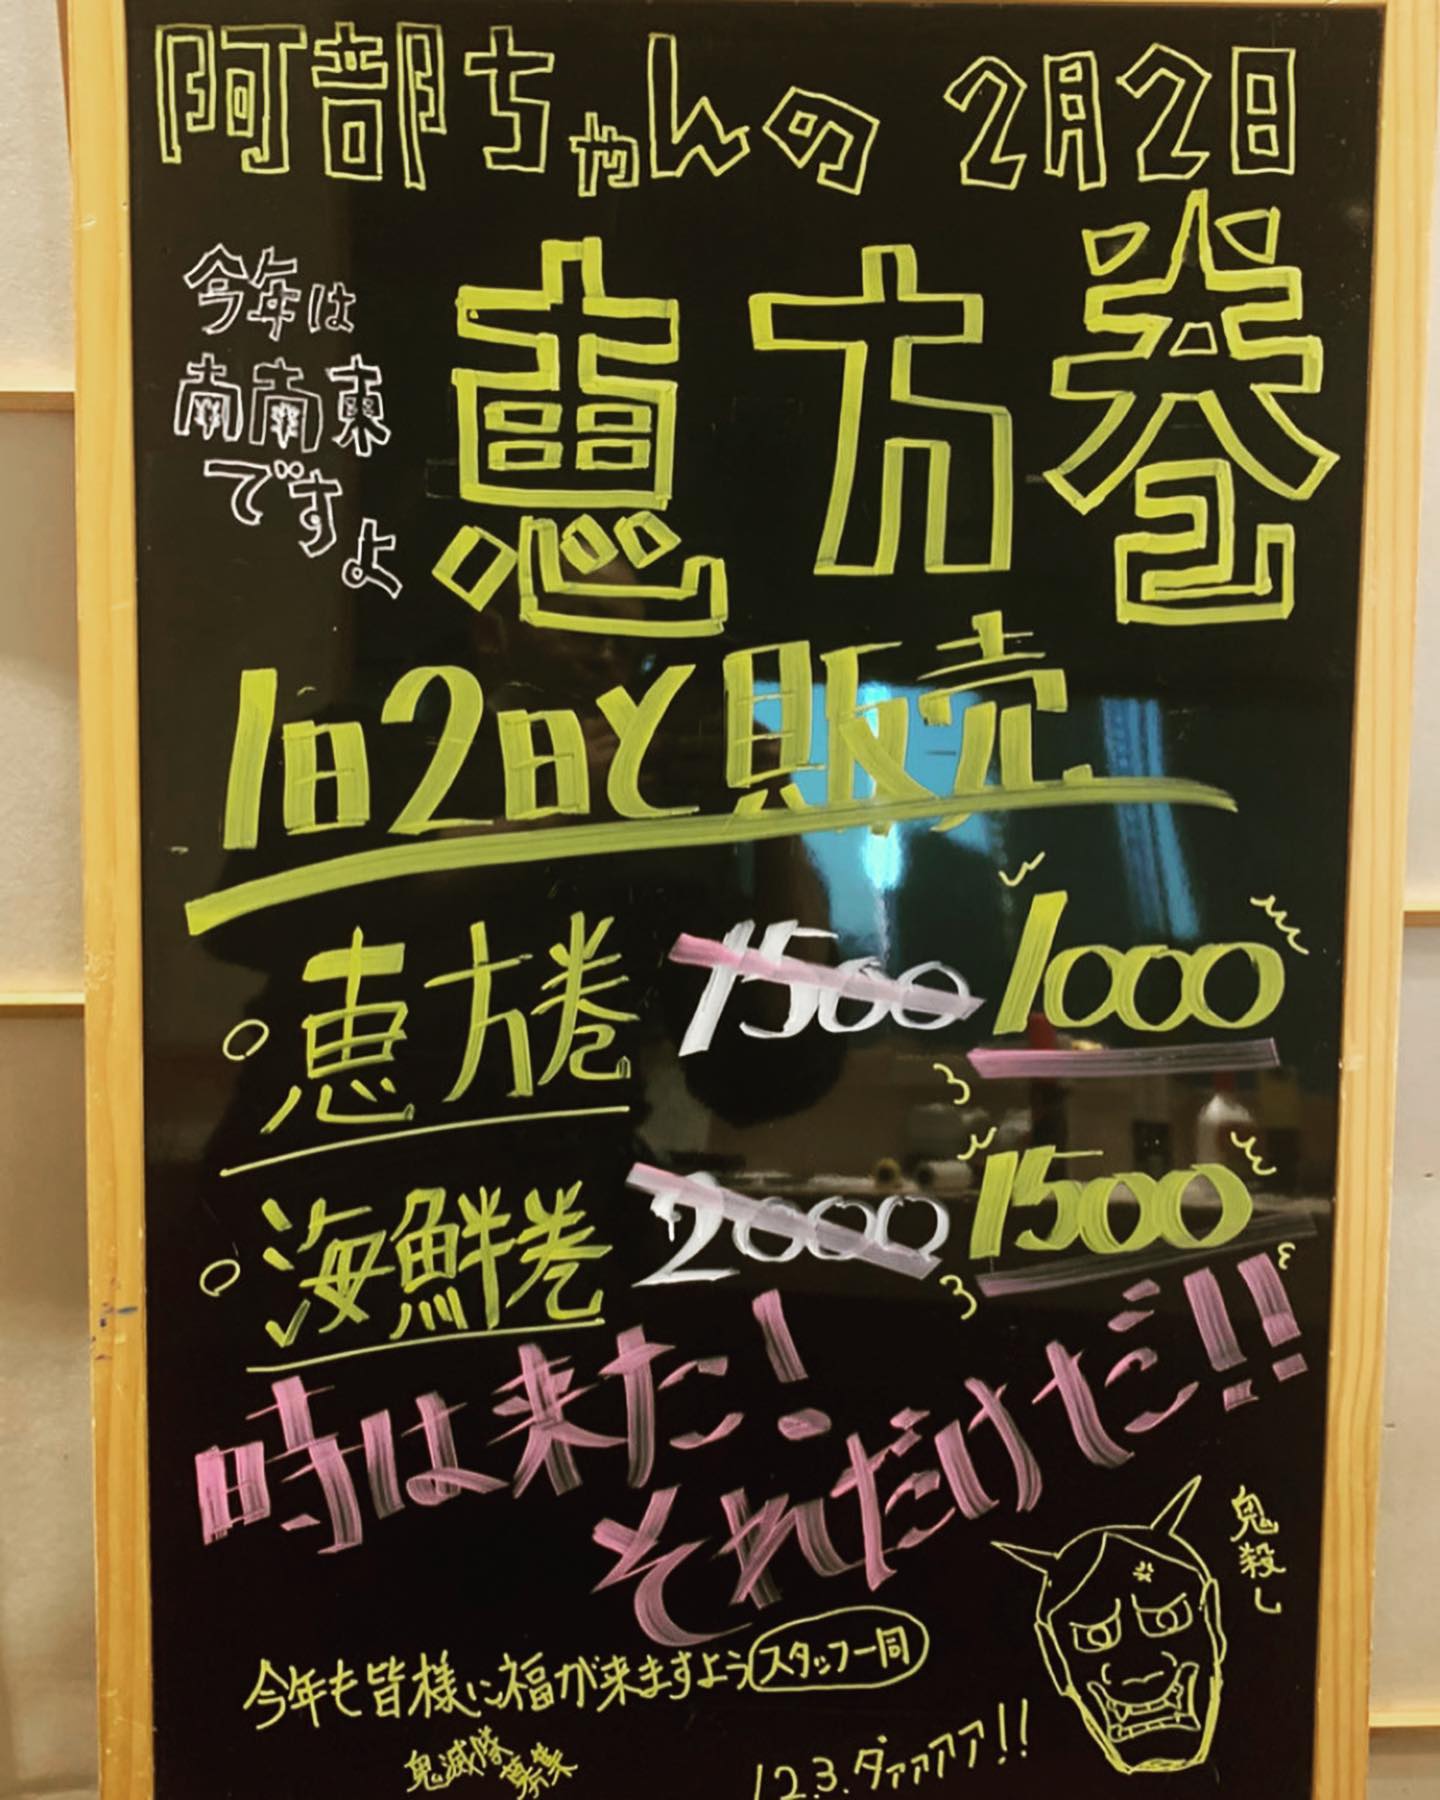 阿部ちゃんの 2月2日
今年は
南南東
ですよ
恵方巻
1日2日と販売
○恵方巻 1500 1000
○海鮮巻 2000 1500
時は来た!
それだけだ!!
鬼殺し
今年も皆様に福が来ますよう スタッフ一同
鬼滅隊
募集
1.2.3.ダァァァァ!!